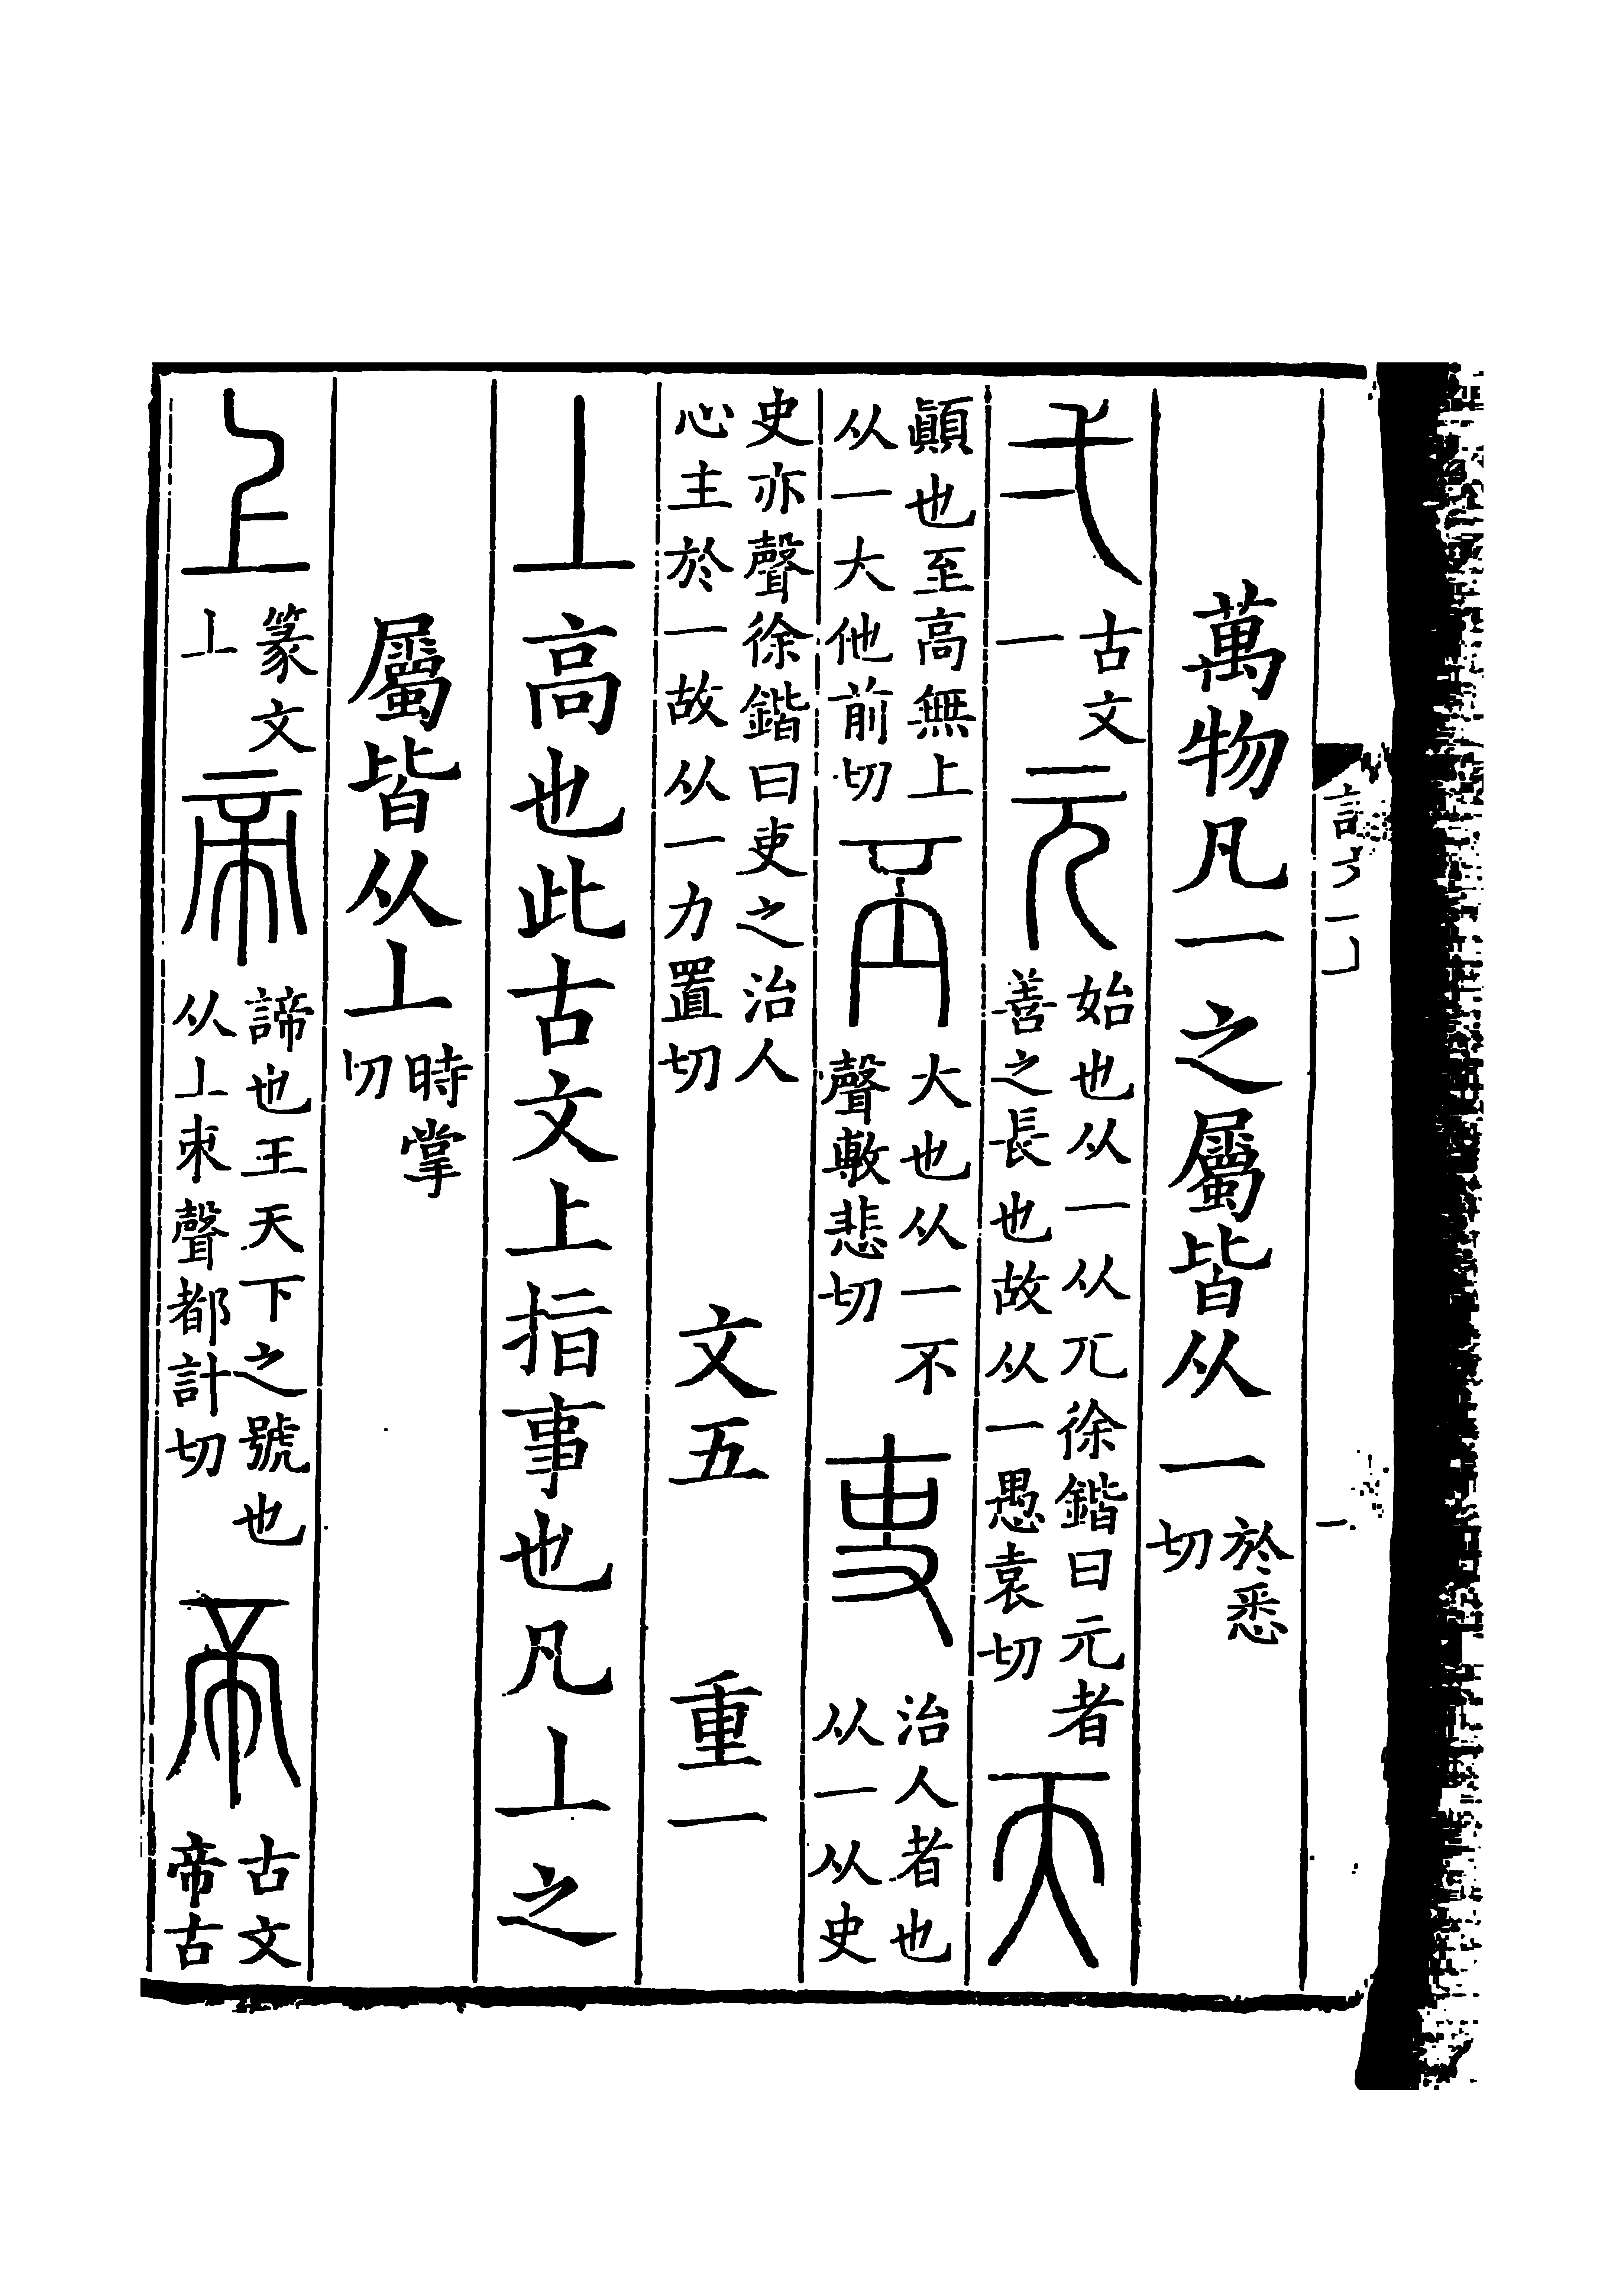 萬物凡一之屬皆从一於悉切
弌古文一元始也从一从兀徐鍇曰元者善之長也故从一愚袁切天
顚也至高無上从一大他前切丕大也从一不聲敷悲切吏治人者也从一从史
史亦聲徐鍇曰吏之治人心主於一故从一力置切 文五 重一
丄高也此古文上指事也凡丄之
屬皆从丄時掌切
上篆文丄帝諦也王天下之號也从丄朿聲都計切帝古文帝古